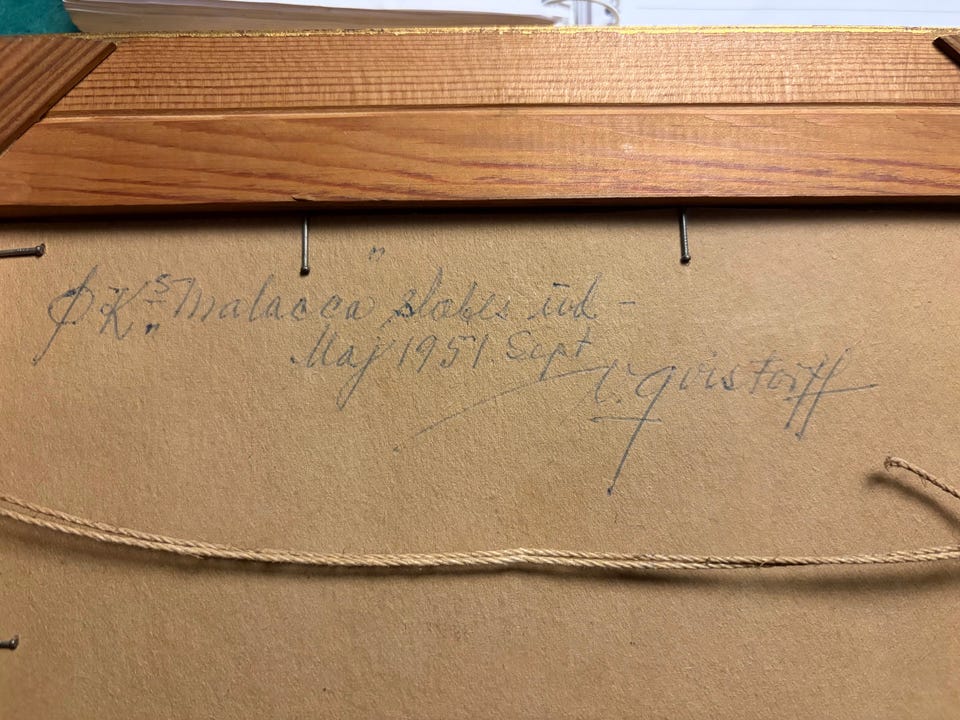 Ø.K.s „Malacca" slæbes ind -
Maj 1951. Sept
V. Qvistorff